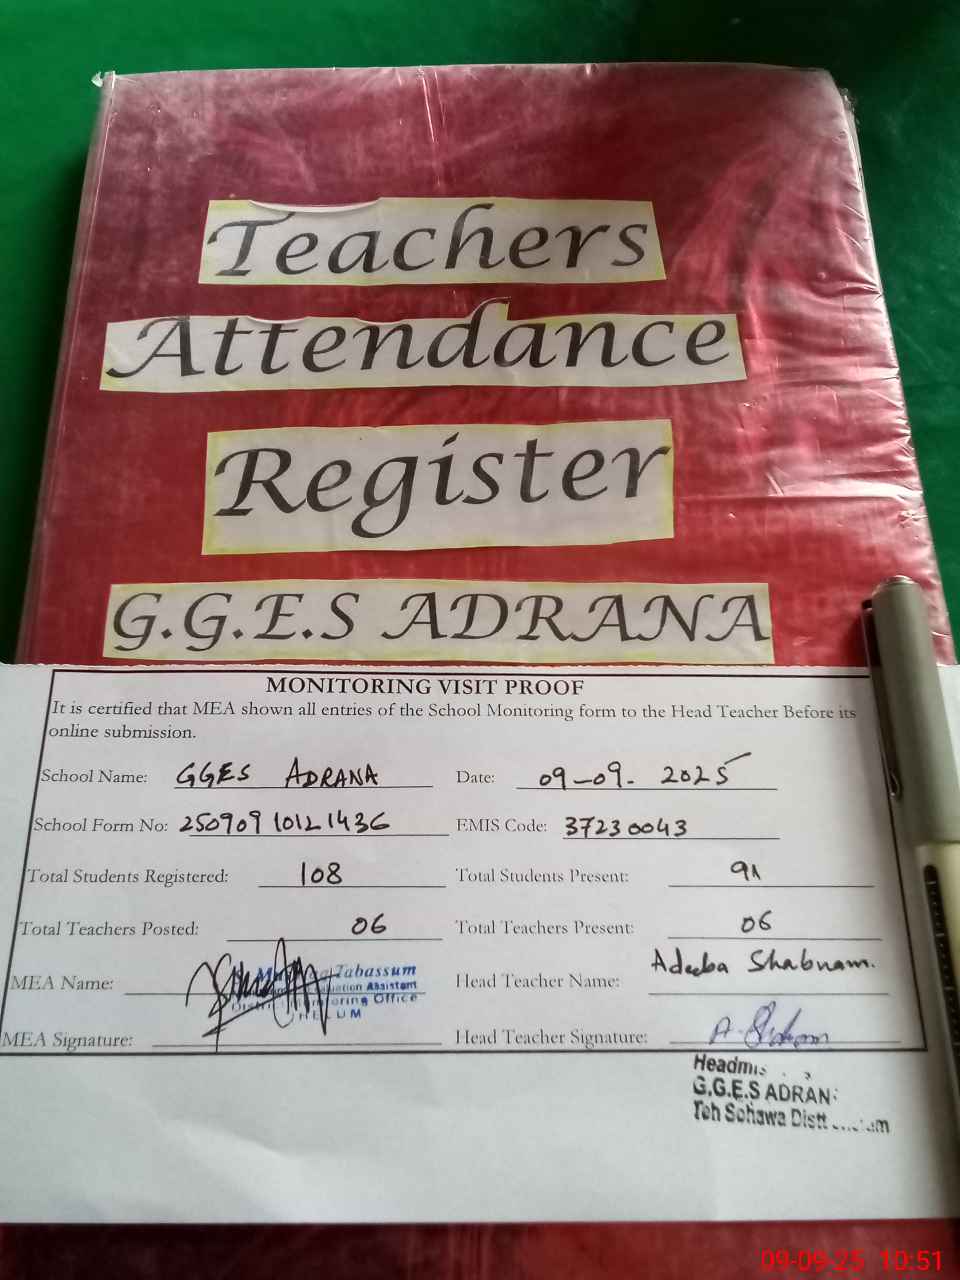 Teachers
Attendance
Register
G.G.E.S ADRANA
MONITORING VISIT PROOF
It is certified that MEA shown all entries of the School Monitoring form to the Head Teacher Before its
online submission.
School Name: GGES ADRANA Date: 09-09-2025
School Form No: 25090910121436 EMIS Code: 37230043
Total Students Registered: 108 Total Students Present: 91
Total Teachers Posted: 06 Total Teachers Present: 06
MEA Name: Tabassum Head Teacher Name: Adeeba Shabnam.
Assistant
Office
MEA Signature: Head Teacher Signature:
G.G.E.S ADRAN
Teh Sohawa Distt
09-09-25 10:51